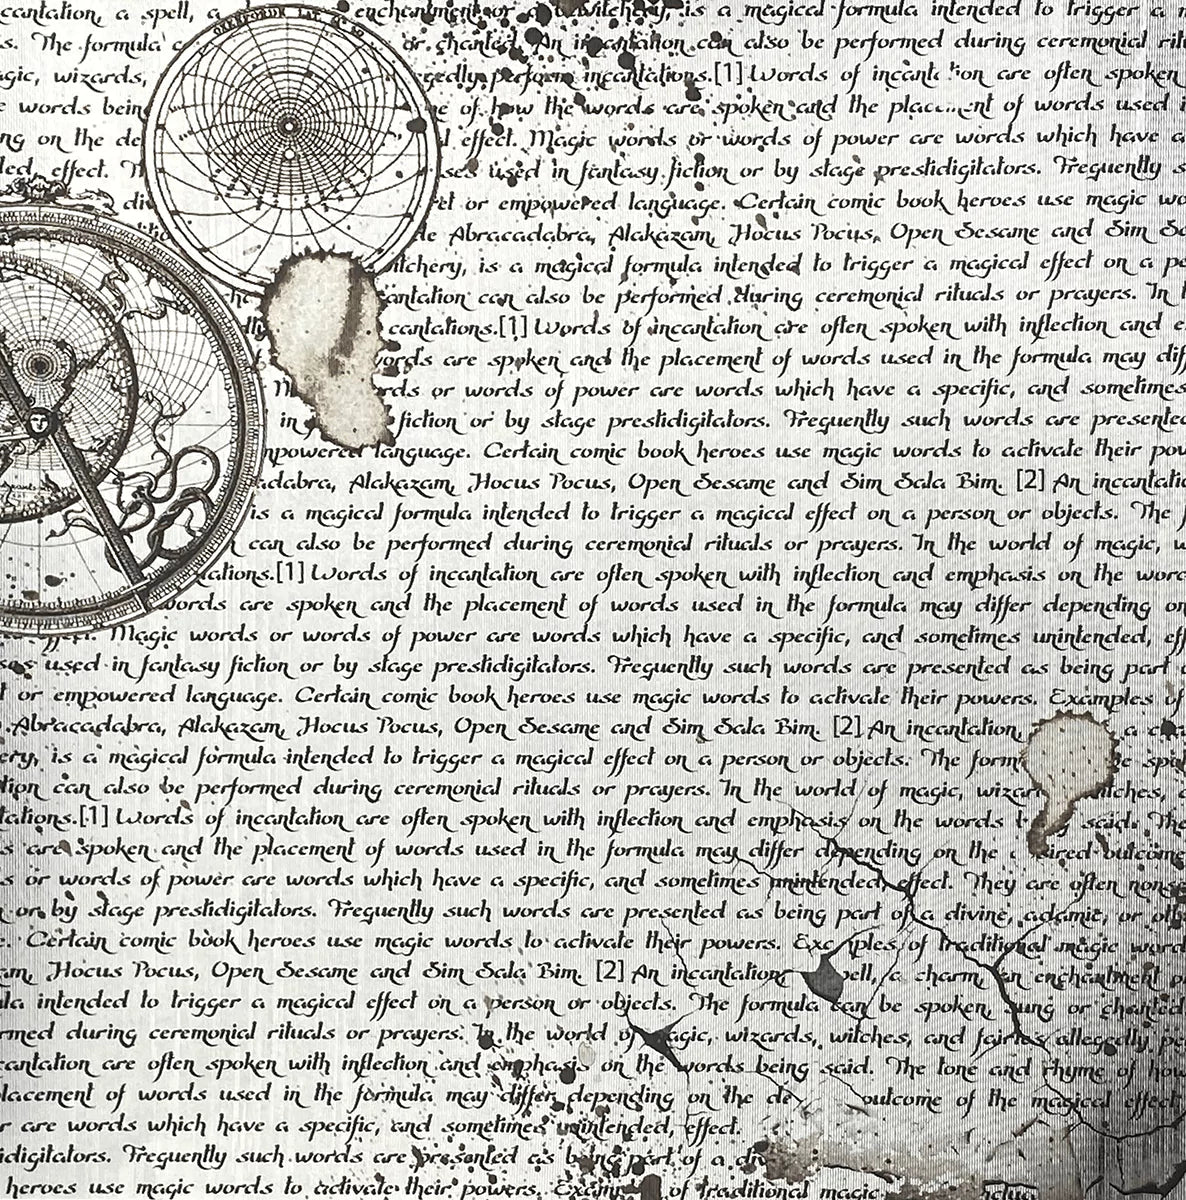 cantation, a spell, a enchantment or a bewitchery, is a magical formula intended to trigger a
s. The formula or chanted. An incantation can also be performed during ceremonial
gic, wizards, perform incantations.[1] Words of are often spoken
words being of how the words are spoken and the of words used
ng on the effect. Magic words or words of power are words which have a
ded, effect. used in fantasy fiction or by stage prestidigitators. Frequently
or empowered language. Certain comic book heroes use magic
Abracadabra, Alakazam, Hocus Pocus, Open Sesame and Sim
witchery, is a magical formula intended to trigger a magical effect on a
antation can also be performed during ceremonial rituals or prayers. In
cantations.[1] Words of incantation are often spoken with inflection and
words are spoken and the placement of words used in the formula may
words or words of power are words which have a specific, and sometimes
in fiction or by stage prestidigitators. Frequently such words are presented
mpowered language. Certain comic book heroes use magic words to activate their
adabra, Alakazam, Hocus Pocus, Open Sesame and Sim Sala Bim. [2] An
is a magical formula intended to trigger a magical effect on a person or objects. The
can also be performed during ceremonial rituals or prayers. In the world of magic,
ations.[1] Words of incantation are often spoken with inflection and emphasis on the
words are spoken and the placement of words used in the formula may differ depending on
Magic words or words of power are words which have a specific, and sometimes unintended,
ses used in fantasy fiction or by stage prestidigitators. Frequently such words are presented as being part
or empowered language. Certain comic book heroes use magic words to activate their powers. Examples of
Abracadabra, Alakazam, Hocus Pocus, Open Sesame and Sim Sala Bim. [2] An incantation, a
ery, is a magical formula intended to trigger a magical effect on a person or objects. The be
tion can also be performed during ceremonial rituals or prayers. In the world of magic,
tations.[1] Words of incantation are often spoken with inflection and emphasis on the words said. The
s are spoken and the placement of words used in the formula may differ depending on the outcome
s or words of power are words which have a specific, and sometimes unintended, effect. They are often
or by stage prestidigitators. Frequently such words are presented as being part of a divine, adamic, or
e. Certain comic book heroes use magic words to activate their powers. of traditional magic words
am, Hocus Pocus, Open Sesame and Sim Sala Bim. [2] An incantation, a charm, an enchantment
ula intended to trigger a magical effect on a person or objects. The formula can be spoken, sung or chanted.
rmed during ceremonial rituals or prayers. In the world of magic, wizards, witches, and fairies allegedly
cantation are often spoken with inflection and emphasis on the words being said. The tone and rhyme of how
lacement of words used in the formula may differ depending on the outcome of the magical effect.
r are words which have a specific, and sometimes unintended, effect.
idigitators. Frequently such words are presented as being part of a
heroes use magic words to activate their powers. of traditional magic